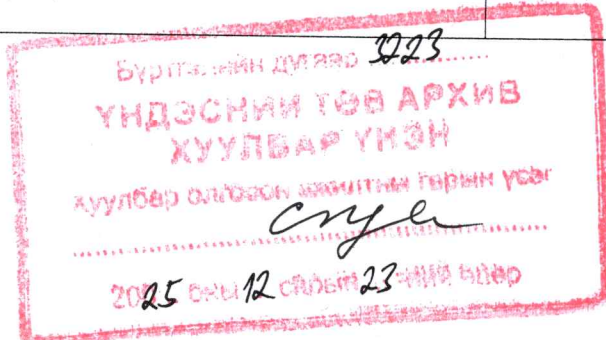 Бүртгэлийн дугаар 3223
ҮНДЭСНИЙ ТӨВ АРХИВ
ХУУЛБАР ҮНЭН
Хуулбар олгосон ажилтны гарын үсэг
2025 оны 12 сарын 23-ний өдөр